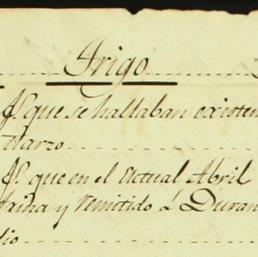 Trigo
que se hallaban existen
Marzo
que en el actual Abril
y remitido á Duran